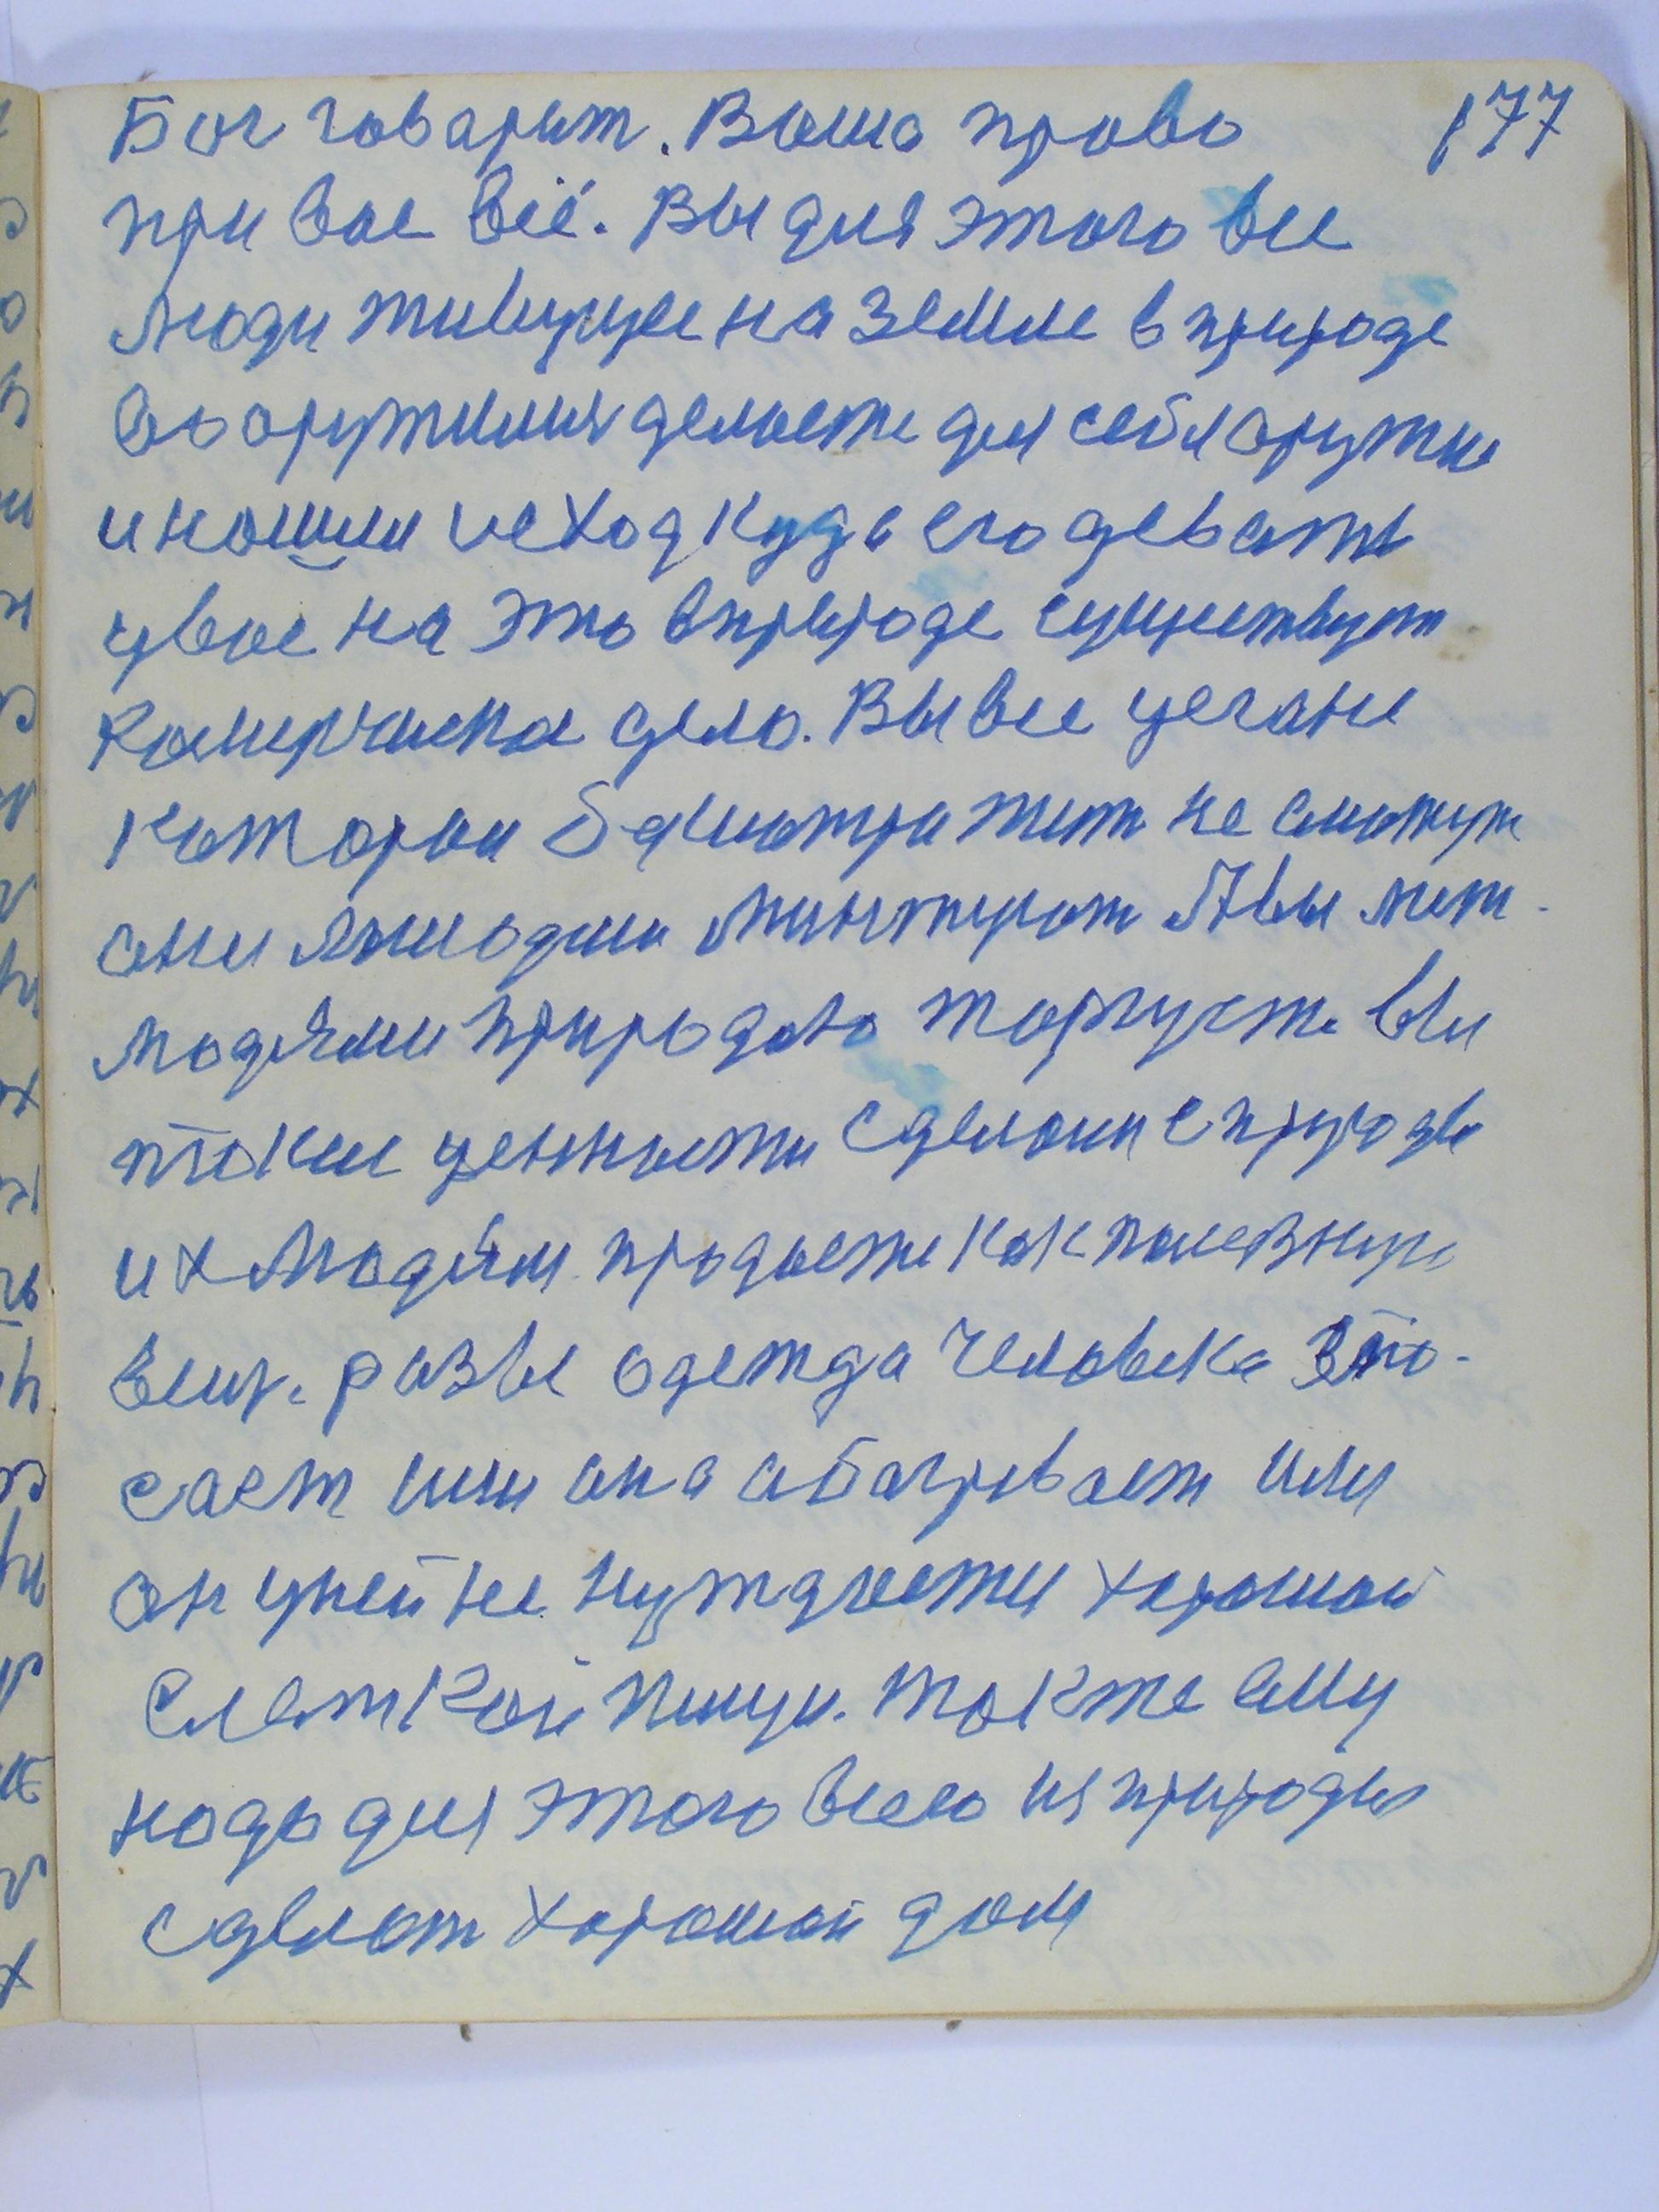 Бог говарит. Ваша право 177
при вас всё. Вы для этого все
люди живущие на земле в природе
вооружились делаете для себя оружие
и нашли исход куда его девать
увас на это в природе существует
Камерчиска дело. Вы все цегане
которые без лошади жить не сможут
они лошадми А вы мет.
людями природою торгуете вы
такие ценности сделали с природы
их людям продаете как полезную
вещ. разве одежда человека
сает или она абагревает или
он уней не нуждается хорошой
слаткой пищи. также ему
надо для этого всего из природы
сделат хорошой дом